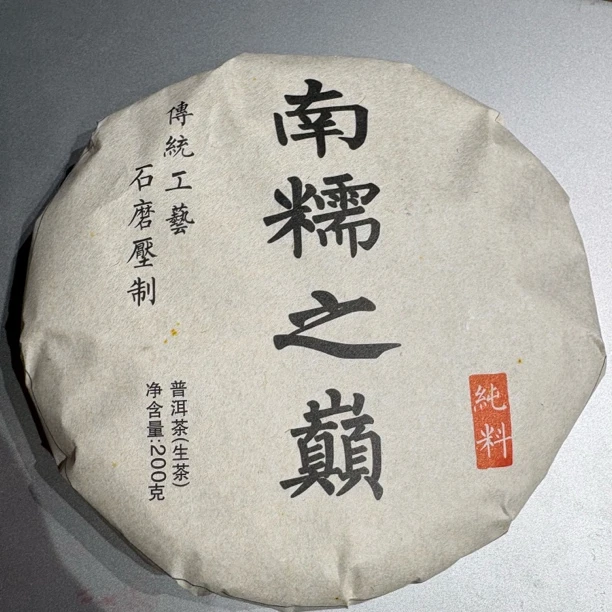 純料
南糯之巔
傳統工藝
石磨壓制
普洱茶(生茶)
净含量:200克